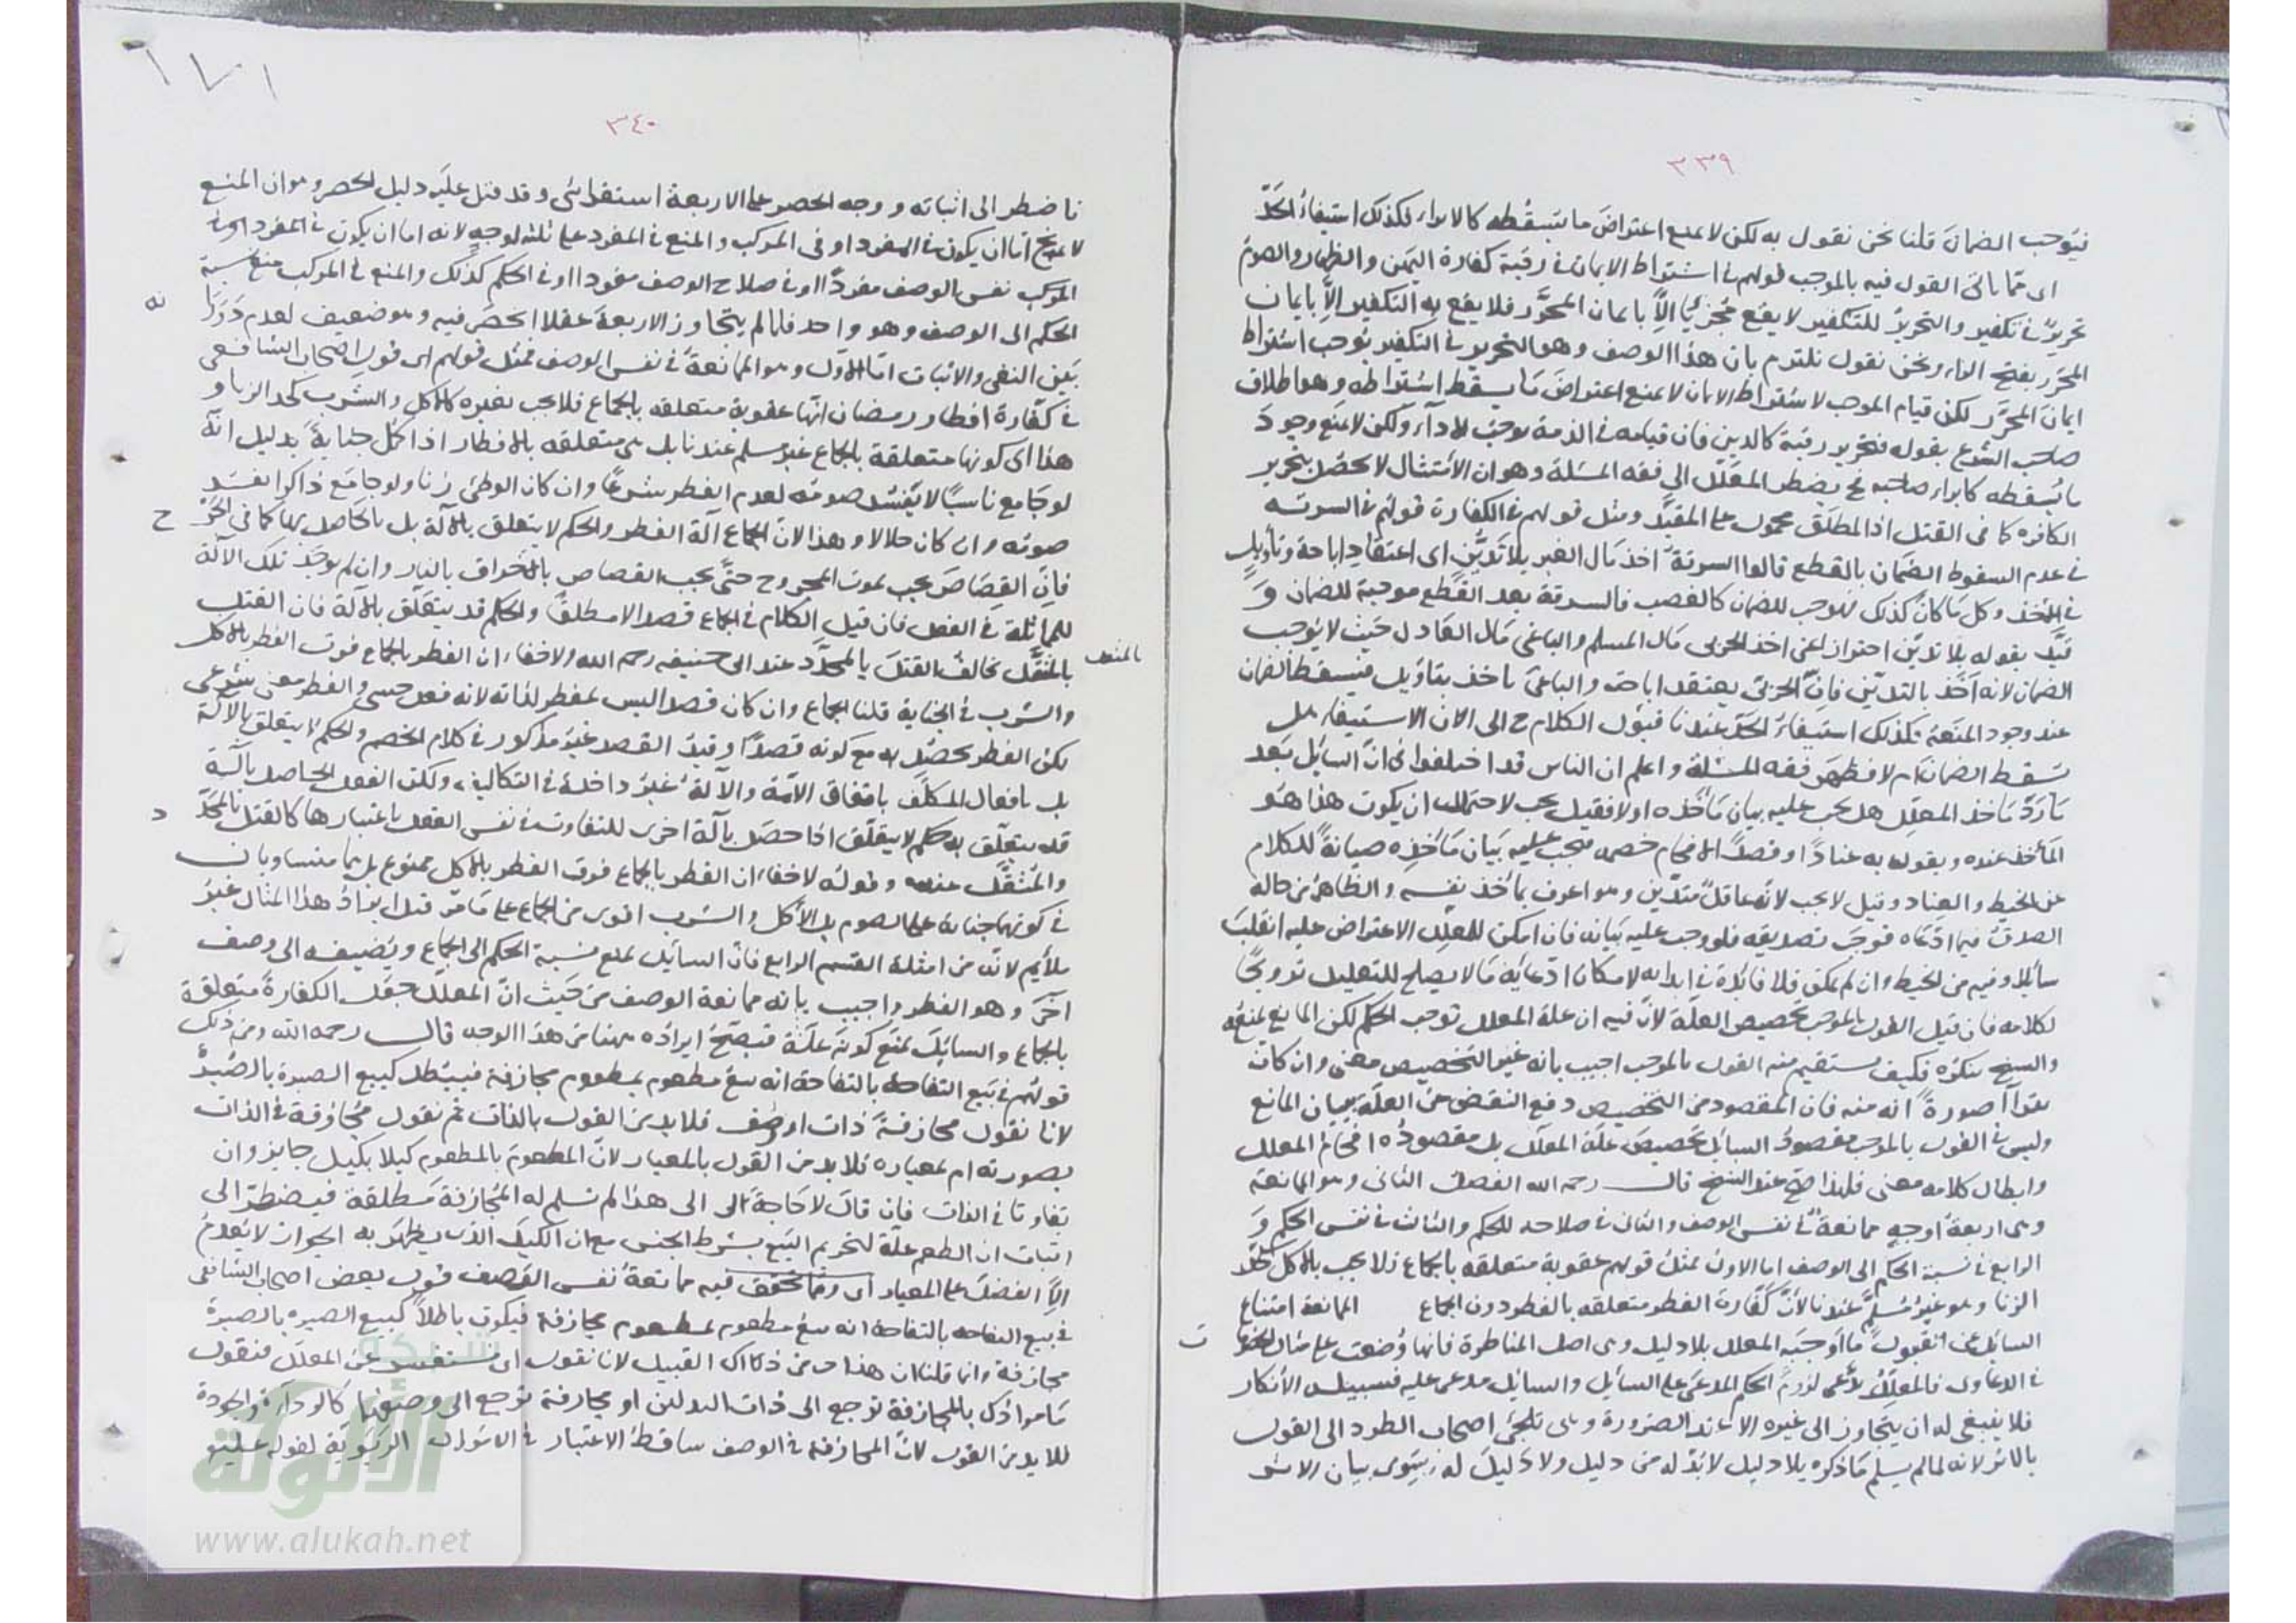 ٣٣٩
فيوجب الضمان قلنا نحن نقول به لكن لا يمنع اعتراض ما يسقطه كالابراء لكذلك استيفاء الحد
اى مما ياتى القول فيه بالموجب قولهم فى اشتراط الايمان فى رقبة كفارة اليمين والظهار والصوم
تحرير فى تكفير والتحرير للتكفير لا يقع مجزيا الا بايمان المحرر فلا يقع به التكفير الا بايمان
المحرر بفتح الراء ونحن نقول نلتزم بان هذا الوصف وهو التحرير فى التكفير يوجب اشتراط
ايمان المحرر لكن قيام الموجب لاشتراط الايمان لا يمنع اعتراض ما يسقط اشتراطه وهو اطلاق
صاحب الشرع بقوله فتحرير رقبة كالدين فان قيامه فى الذمة يوجب الاداء ولكن لا يمنع وجود
ما يسقطه كابراء صاحبه فح يضطر المعلل الى فقه المسئلة وهو ان الامتثال لا يحصل بتحرير
الكافره كما فى القتل اذ المطلق محمول على المقيد ومثل قولهم فى الكفارة قولهم فى السرقة
فى عدم السقوط الضمان بالقطع قالوا السرقة اخذ مال الغير بلا تدين اى اعتقاد اباحة وتأويل
فى الاخذ وكل ما كان كذلك فيوجب للضمان كالغصب فالسرقة بعد القطع موجبة للضمان و
قيد بقوله بلا تدين احتراز اعن اخذ الحربى مال المسلم والباغى مال العادل حيث لا يوجب
الضمان لانه اخذ بالتدين فان الحربى يعتقد اباحته والباغى ياخذ بتاويل فيسقط الضمان
عند وجود المنعة فكذلك استيفاء الحد عندنا فيؤل الكلام ح الى الان الاستيفاء هل
يسقط الضمان ام لا فظهر فقه المسئلة واعلم ان الناس قد اختلفوا فى ان السائل بعد
ما رد ماخذ المعلل هل يجب عليه بيان مأخذه او لا فقيل يجب لاحتمال ان يكون هذا هو
المأخذ عنده ويقوله به عنادا او قصدا لافحام خصمه فيجب عليه بيان مأخذه صيانة للكلام
عن الخبط والعناد وقيل لا يجب لانه عاقل متدين وهو اعرف بمأخذ نفسه والظاهر من حاله
الصدق فيما ادعاه فوجب تصديقه فلو وجب عليه بيانه فان امكن للمعلل الاعتراض عليه انقلب
سائلا وفيه من الخبط وان لم يمكن فلا فائدة فى ابدائه لامكان ادعائه ما لا يصلح للتعليل ترويجا
لكلامه فان قيل القول بالموجب تخصيص العلة لان فيه ان علة المعلل توجب الحكم لكن المانع يمنعه
والشيخ ينكره فكيف يستقيم منه القول بالموجب اجيب بانه غير التخصيص معنى وان كان
يتراآ صورة انه منه فان المقصود من التخصيص دفع النقض عن العلة ببيان المانع
وليس فى القول بالموجب مقصود السائل تخصيص علة المعلل بل مقصوده افحام المعلل
وابطال كلامه معنى فلهذا صح عند الشيخ قال رحمه الله الفصل الثانى وهو الممانعة
وهى اربعة اوجه ممانعة فى نفس الوصف والثانى فى صلاحه للحكم والثالث فى نفس الحكم و
الرابع فى نسبة الحكم الى الوصف اما الاول فمثل قولهم عقوبة متعلقه بالجماع فلا يجب بالاكل كحد
الزنا وهو غير مسلم عندنا لان كفارة الفطر متعلقه بالفطر دون الجماع الممانعة امتناع
السائل عن القبول ما اوجبه المعلل بلا دليل وهى اصل المناظرة فانها وضعت على مثال
فى الدعاوى فالمعلل يدعى لزوم الحكم المدعى على السائل والسائل مدعى عليه فسبيله الانكار
فلا ينبغى له ان يتجاوز الى غيره الا عند الضرورة وهى تلجئ اصحاب الطرد الى القول
بالاثر لانه لما لم يسلم ما ذكره بلا دليل لا بد له من دليل ولا دليل له سوى بيان الاثر
٣٤٠
فاضطر الى اثباته ووجه الحصر على الاربعة استقرائى وقد قيل عليه دليل الحصر وهو ان المنع
لا يخ اما ان يكون فى المفرد او فى المركب والمنع فى المفرد على ثلثه اوجه لانه اما ان يكون فى المفرد
المركب نفس الوصف مفردا او فى صلاح الوصف مفردا او فى الحكم كذلك والمنع فى المركب منع نسبة
الحكم الى الوصف وهو واحد فلما لم يتجاوز الاربعة عقلا انحصر فيه وهو ضعيف لعدم دورانه
بين النفى والاثبات اما الاول وهو الممانعة فى نفس الوصف فمثل قولهم اى قول اصحاب الشافعى
فى كفارة افطار رمضان انها عقوبة متعلقه بالجماع فلا يجب بغيره كالاكل والشرب كحد الزنا و
هذا اى كونها متعلقة بالجماع غير مسلم عندنا بل هى متعلقه بالافطار اذا كمل جناية بدليل انه
لو جامع ناسيا لا يفسد صومه لعدم الفطر شرعا وان كان الوطئ زنا ولو جامع ذاكرا يفسد
صومه وان كان حلالا وهذا لان الجماع آلة الفطر والحكم لا يتعلق بالآلة بل بالحاصل بها كما فى الجرح
فان القصاص يجب بموت المجروح حتى يجب القصاص بالاحراق بالنار وان لم يوجد تلك الآلة
للمماثلة فى الفعل فان قيل الكلام فى الجماع قصدا لا مطلقا والحكم قد يتعلق بالآلة فان القتل
بالمثقل يخالف القتل بالمحدد عند ابى حنيفه رحمه الله ولا خفاء ان الفطر بالجماع فوق الفطر بالاكل
والشرب فى الجناية قلنا الجماع وان كان قصدا ليس بمفطر لذاته لانه فعل حسى والفطر معنى شرعى
لكن الفطر يحصل به مع كونه قصدا وقيد القصد غير مذكور فى كلام الخصم والحكم لا يتعلق بالآلة
بل بافعال المكلف باتفاق الائمة والآلة غير داخلة فى التكاليف ولكن الفعل الحاصل بآلة
قد يتعلق به حكم لا يتعلق اذا حصل بآلة اخرى للتفاوت فى نفس الفعل باعتبارها كالقتل بالمحدد
والمثقل عنده وقوله لا خفاء ان الفطر بالجماع فوق الفطر بالاكل ممنوع بل هما متساويان
فى كونهما جناية على الصوم بل الاكل والشرب اقوى من الجماع على ما مر قيل ايراد هذا المثال غير
ملائم لانه من امثلة القسم الرابع فان السائل يمنع نسبة الحكم الى الجماع ويضيفه الى وصف
آخر وهو الفطر واجيب بانه ممانعة الوصف من حيث ان المعلل جعل الكفارة متعلقة
بالجماع والسائل يمنع كونه علة فيصح ايراده ههنا من هذا الوجه قال رحمه الله ومن ذلك
قولهم فى بيع التفاحة بالتفاحة انه بيع مطعوم بمطعوم مجازفة فيبطل كبيع الصبرة بالصبرة
لانا نقول مجازفة ذات او وصف فلا بد من القول بالذات ثم نقول مجازفة فى الذات
بصورته ام بمعياره فلا بد من القول بالمعيار لان المطعوم بالمطعوم كيلا بكيل جايز وان
تفاوتا فى الذات فان قال لا حاجة لى الى هذا لم نسلم له المجازفة مطلقة فيضطر الى
اثبات ان الطعم علة لتحريم البيع بشرط الجنس مع ان الكيل الذى يظهر به الجواز لا يعدم
الا الفضل على المعيار اى ومما تحقق فيه ممانعة نفس الوصف قول بعض اصحاب الشافعى
فى بيع التفاحه بالتفاحة انه بيع مطعوم بمطعوم مجازفة فيكون باطلا كبيع الصبره بالصبرة
مجازفة وانما قلنا ان هذا من ذلك القبيل لانا نقول اى نستفسر عن المعلل فنقول
ما مرادك بالمجازفة ترجع الى ذات البدلين او مجازفة ترجع الى وصفهما كالرداءة والجودة
فلا بد من القول لان المجازفة فى الوصف ساقط الاعتبار فى الاموال الربوية لقوله عليه
شبكة
الألوكة
www.alukah.net